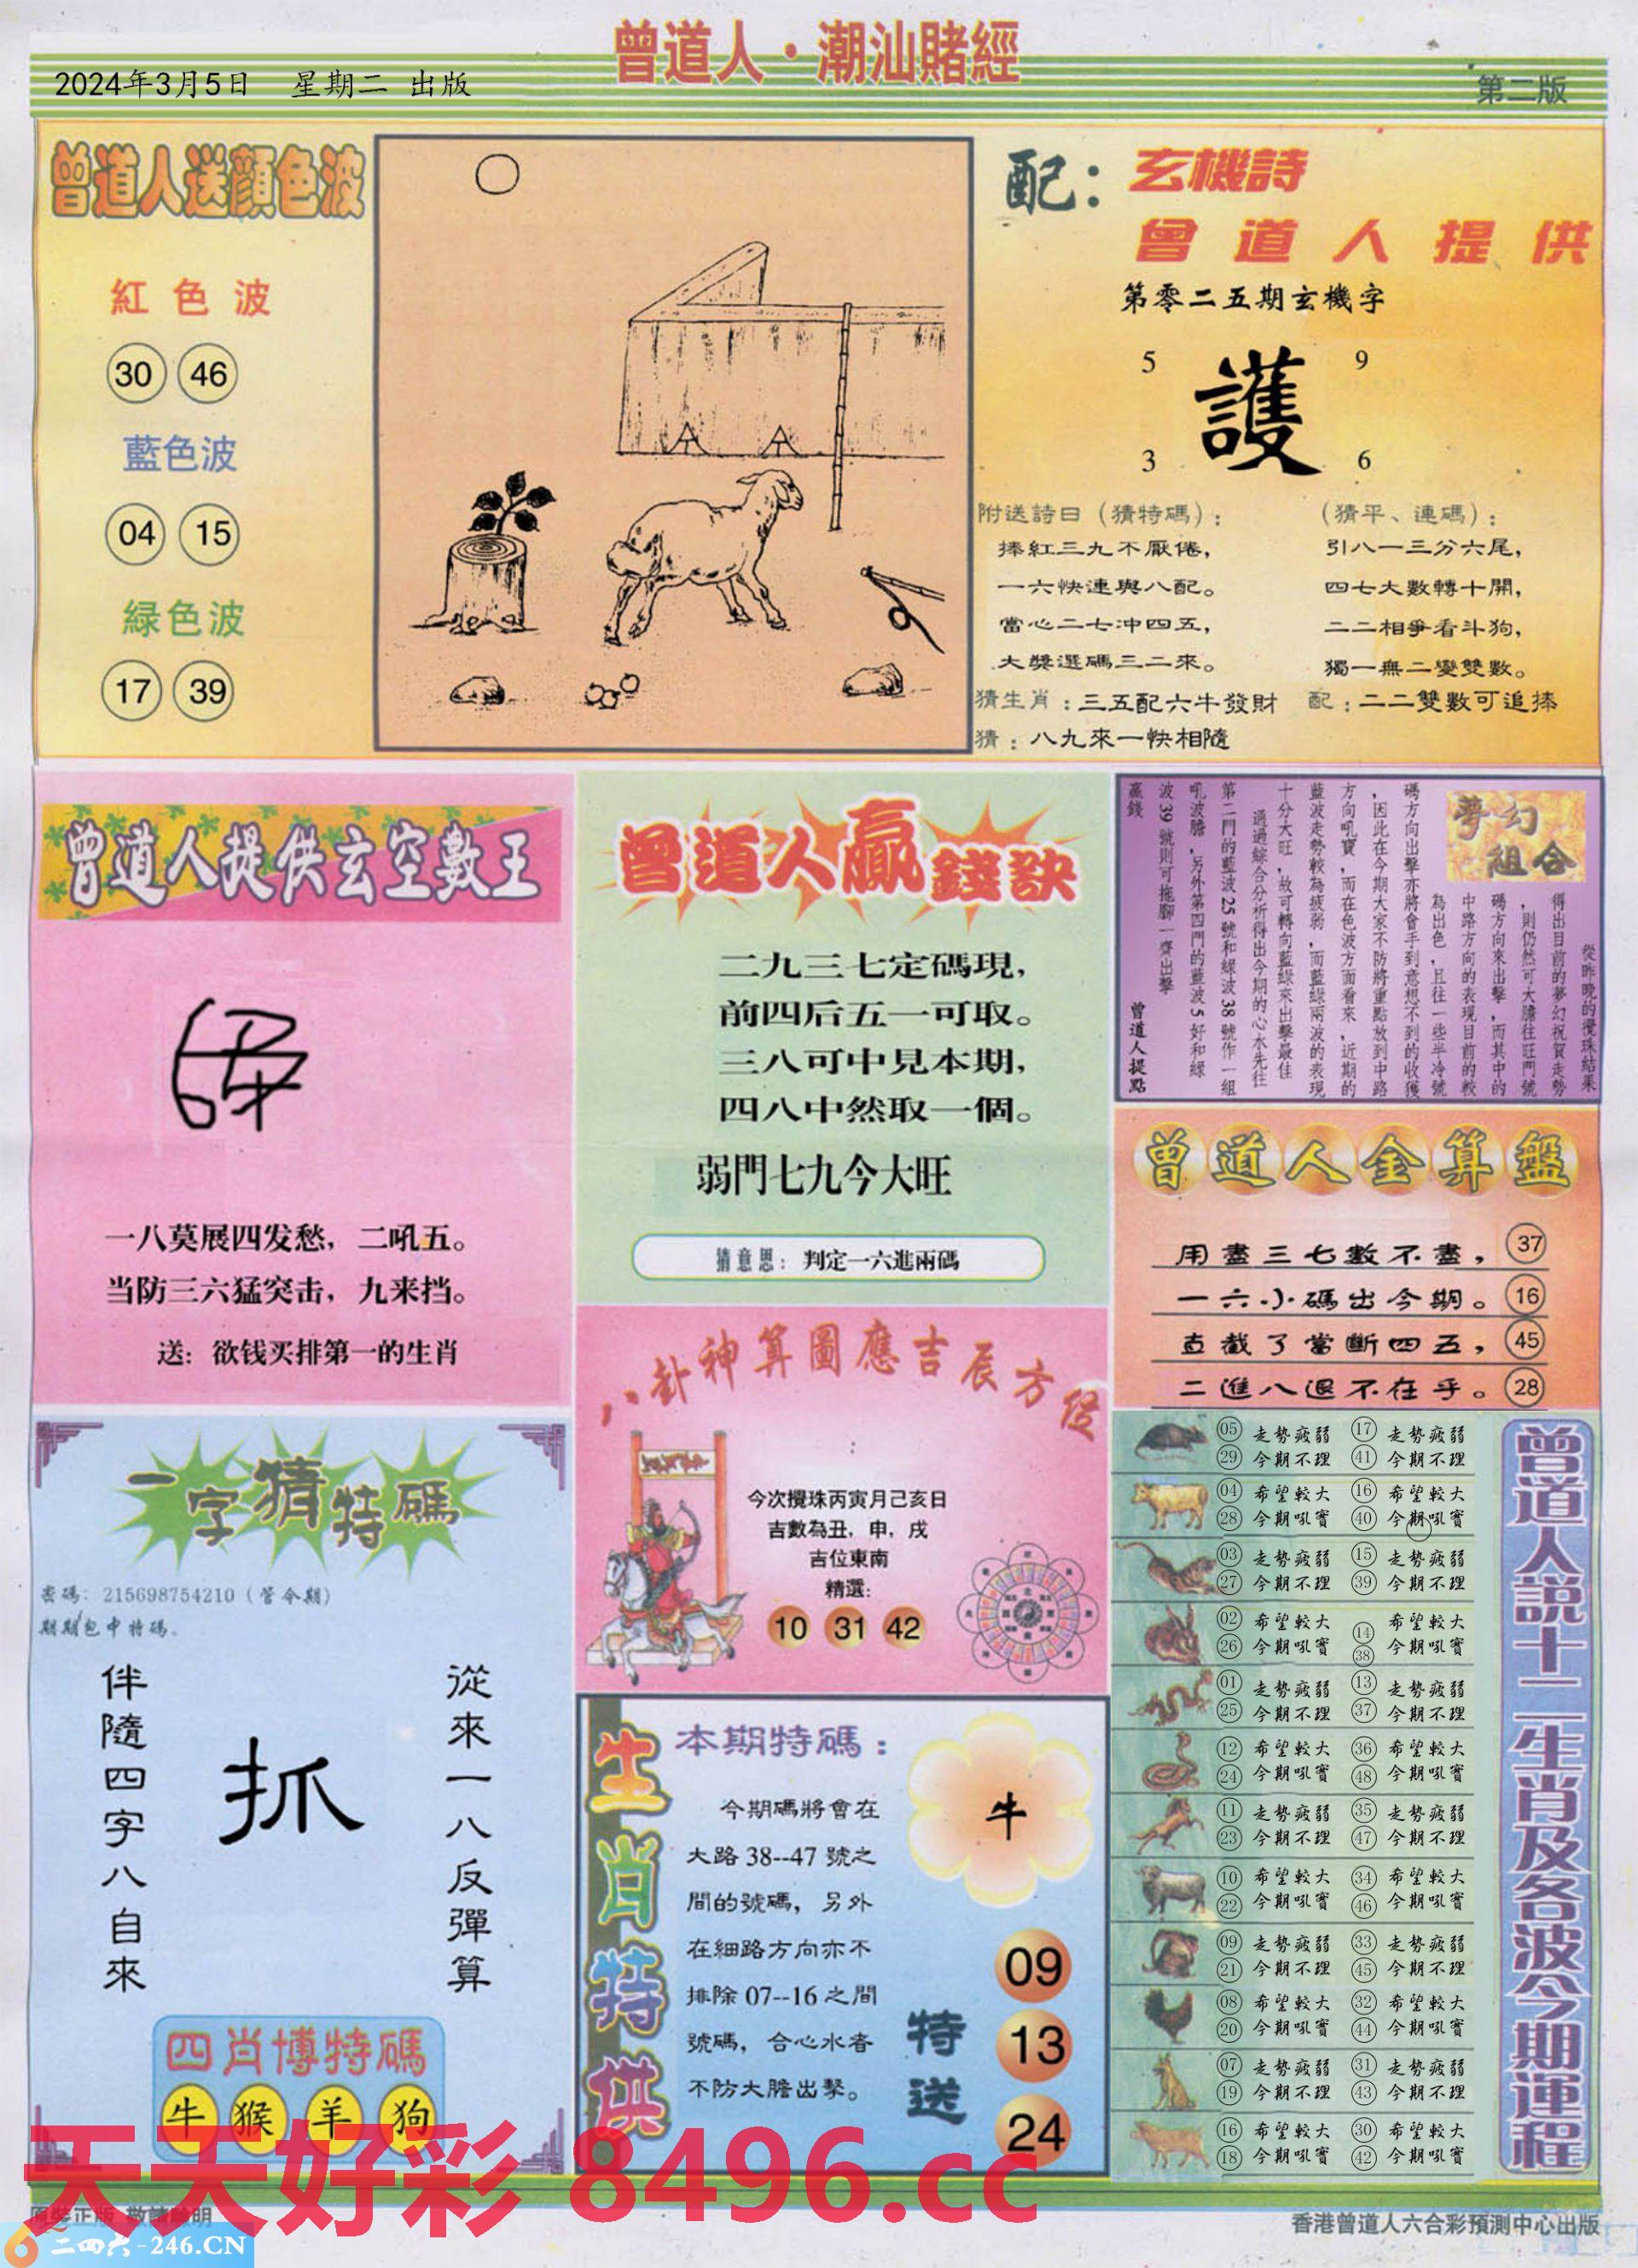 曾道人·潮汕賭經
2024年3月5日 星期二 出版
第二版
曾道人送顏色波
紅色波
30 46
藍色波
04 15
緑色波
17 39
配：玄機詩
曾道人提供
第零二五期玄機字
5 9
護
3 6
附送詩日（猜特碼）：
捧紅三九不厭倦，
一六快連與八配。
當心二七冲四五，
大獎選碼三二來。
（猜平、連碼）：
引八一三分六尾，
四七大數轉十開，
二二相爭看斗狗，
獨一無二變雙數。
猜生肖：三五配六牛發財
配：二二雙數可追捧
猜：八九來一快相隨
曾道人提供玄空數王
一八莫展四发愁，二吼五。
当防三六猛突击，九来挡。
送：欲钱买排第一的生肖
曾道人贏錢訣
二九三七定碼現，
前四后五一可取。
三八可中見本期，
四八中然取一個。
弱門七九今大旺
猜意思：判定一六進兩碼
夢幻
組合
從昨晚的攪珠結果
得出目前的夢幻祝賀走勢
，則仍然可大膽往旺門號
碼方向來出擊，而其中的
中路方向的表現目前的較
為出色，且往一些半冷號
碼方向出擊亦將會手到意想不到的收獲
，因此在今期大家不防將重點放到中路
方向吼寶，而在色波方面看來，近期的
藍波走勢較為疲弱，而藍綠兩波的表現
十分大旺，故可轉向藍綠來出擊最佳
通過綜合分析得出今期的心水先往
第二門的藍波25號和綠波38號作一組
吼波膽，另外第四門的藍波5好和綠
波39號則可拖腳一齊出擊
贏錢
曾道人提點
曾道人金算盤
用盡三七數不盡， 37
一六小碼出今期。 16
直截了當斷四五， 45
二進八退不在乎。 28
八卦神算圖應吉辰方位
今次攪珠丙寅月己亥日
吉數為丑，申，戌
吉位東南
精選：
10 31 42
一字猜特碼
密碼：215698754210（管今期）
期期包中特碼。
從來一八反彈算
抓
伴隨四字八自來
四肖博特碼
牛 猴 羊 狗
生肖特供
本期特碼：
牛
今期碼將會在
大路38--47號之
間的號碼，另外
在細路方向亦不
排除07--16之間
號碼，合心水者
不防大膽出擊。
特送
09
13
24
曾道人說十二生肖及各波今期運程
05 走勢疲弱 17 走勢疲弱
29 今期不理 41 今期不理
04 希望較大 16 希望較大
28 今期吼寶 40 今期吼寶
03 走勢疲弱 15 走勢疲弱
27 今期不理 39 今期不理
02 希望較大 14 希望較大
26 今期吼寶 38 今期吼寶
01 走勢疲弱 13 走勢疲弱
25 今期不理 37 今期不理
12 希望較大 36 希望較大
24 今期吼寶 48 今期吼寶
11 走勢疲弱 35 走勢疲弱
23 今期不理 47 今期不理
10 希望較大 34 希望較大
22 今期吼寶 46 今期吼寶
09 走勢疲弱 33 走勢疲弱
21 今期不理 45 今期不理
08 希望較大 32 希望較大
20 今期吼寶 44 今期吼寶
07 走勢疲弱 31 走勢疲弱
19 今期不理 43 今期不理
16 希望較大 30 希望較大
18 今期吼寶 42 今期吼寶
天天好彩 8496.cc
原裝正版 敬請
二四六-246.CN
香港曾道人六合彩預測中心出版